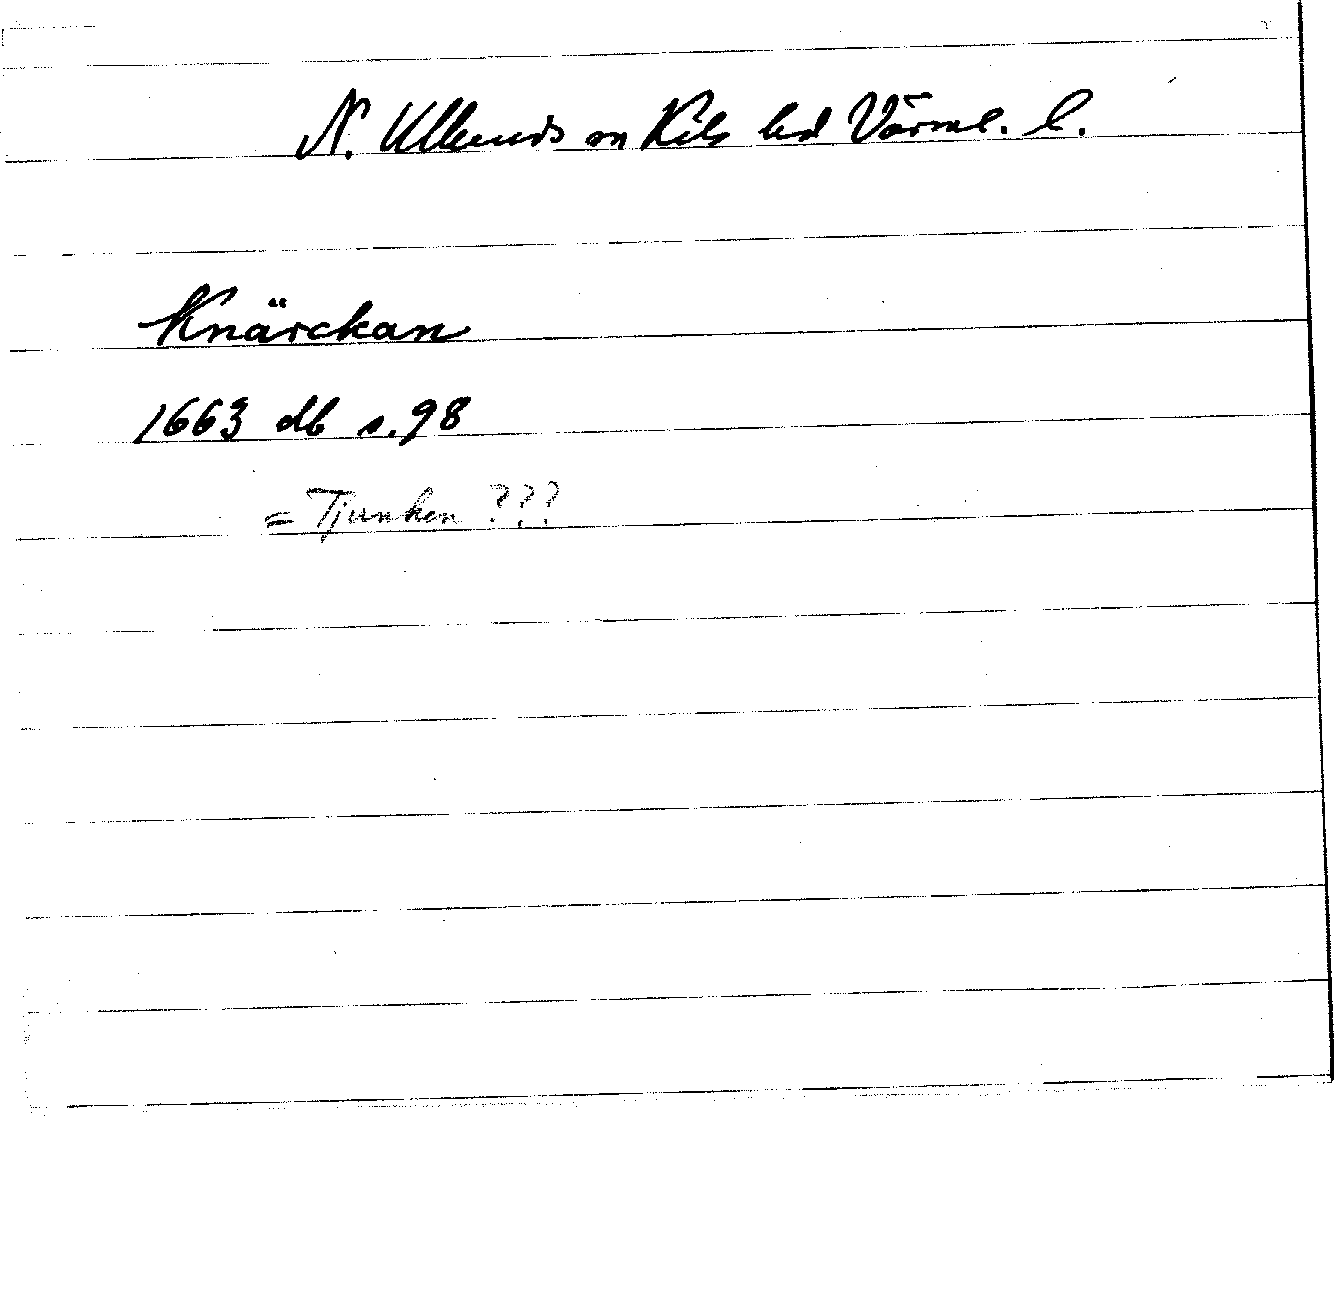 N. Ulleruds sn Kils hd Värml. l.
Knärckan
1663 db s. 98
= Tjurken ???